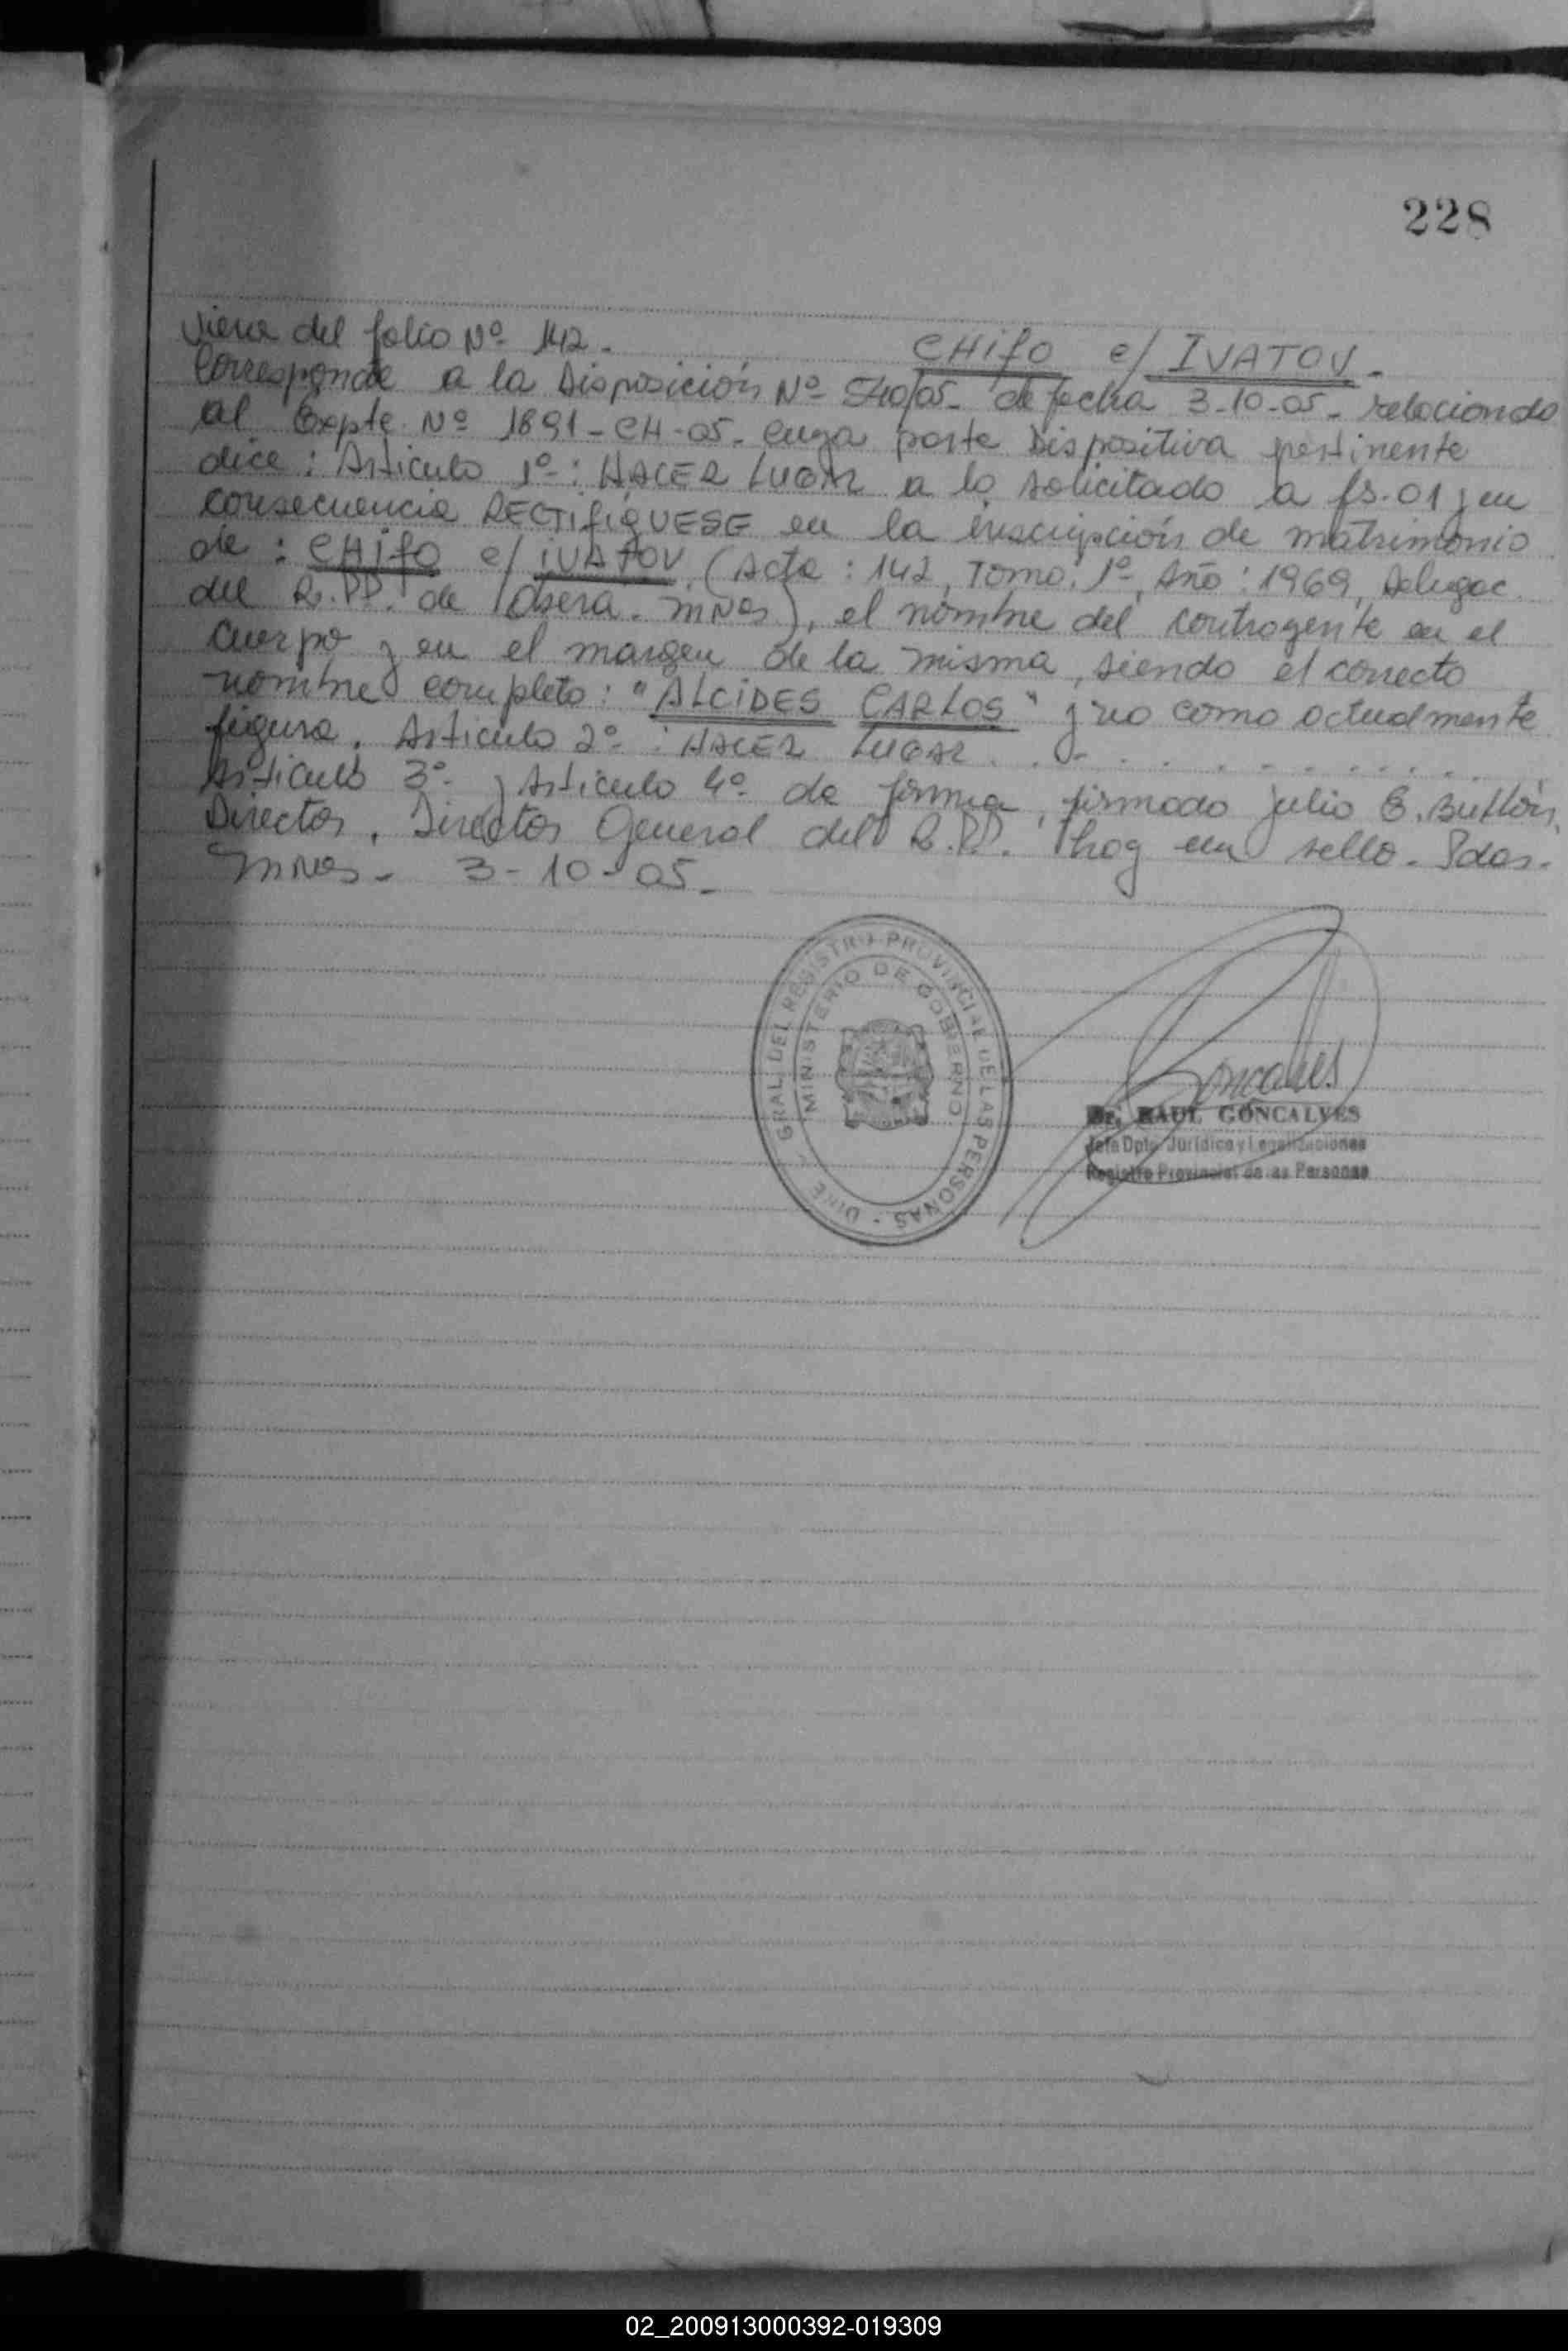 228
Viene del folio Nº 142.
CHifO c/ IVATOV.
Corresponde a la Disposición Nº 540/05- de fecha 3-10-05- relaciondo
al Expte. Nº 1891-CH-05. cuya parte Dispositiva pertinente
dice: Articulo 1º: HACER LUGAR a lo solicitado a fs.01 y en
consecuencia RECTIFIQUESE en la inscripción de matrimonio
de: CHifO c/ IVATOV (Acta: 142, Tomo: 1º, Año: 1969, Delegac.
del R.PP. de Obera. Mnes), el nombre del contrayente en el
cuerpo y en el margen de la misma, siendo el correcto
nombre completo: "ALCIDES CARLOS" y no como actualmente
figura. Articulo 2º: HACER LUGAR . . . . . . . . . .
Articulo 3º- y Articulo 4º de forma, firmado Julio E.
Director, Director General del R.P.P. hay un sello. Pdas.
Mnes- 3-10-05-
GRAL. DEL REGISTRO PROVINCIAL DE LAS PERSONAS -
MINISTERIO DE GOBIERNO
Goncalves
Dr. RAUL GONCALVES
Jefe Dpto. Jurídico y Legalizaciones
Registro Provincial de las Personas
02_200913000392-019309